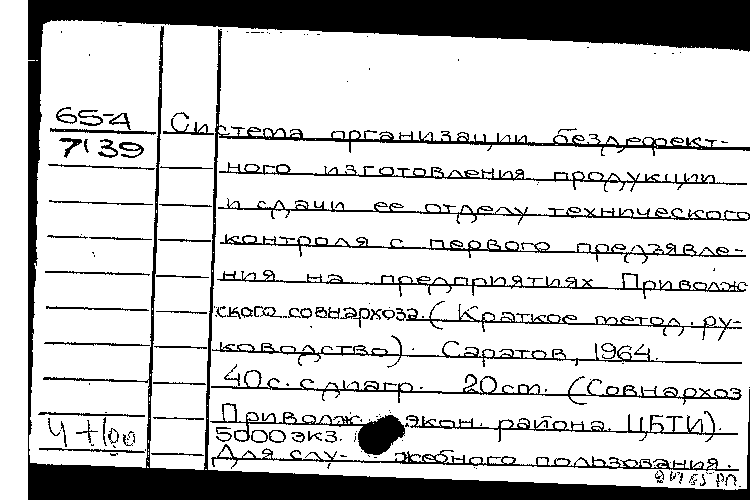 65-4
7'39
Система организации бездефект-
ного изготовления продукции
и сдачи ее отделу технического
контроля с первого предъявле-
ния на предприятиях Приволж-
ского совнархоза. (Краткое метод. ру-
ководство). Саратов, 1964.
40с. с диагр. 20см. (Совнархоз
Приволж. экон. района. ЦБТИ).
5000 экз.
Для слу- жебного пользования.